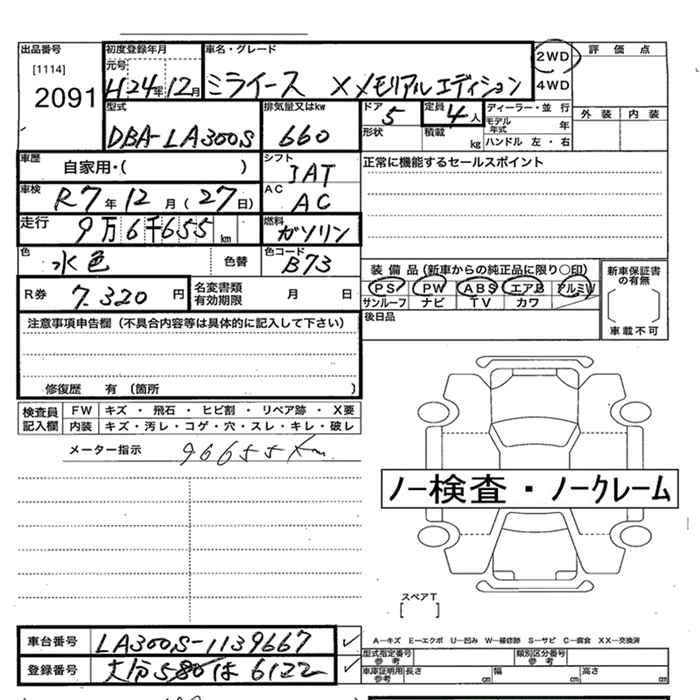 出品番号 初度登録年月 車名・グレード 2WD 評価点
[1114] 元号
2091 H24年12月 ミライース Xメモリアルエディション 4WD
型式 排気量又はkw ドア 定員 ディーラー・並行 外装 内装
DBA-LA300S 660 5 4人 モデル年式 年
形状 積載 kg ハンドル 左・右
車歴 自家用・( ) シフト IAT 正常に機能するセールスポイント
車検 R7年12月(27日) AC AC
走行 9万6千655km 燃料 ガソリン
色 水色 色替 色コード B73 装備品(新車からの純正品に限り○印) 新車保証書の有無
R券 7.320円 名変書類有効期限 月 日 PS PW ABS エアB アルミW
サンルーフ ナビ TV カワ
注意事項申告欄(不具合内容等は具体的に記入して下さい) 後日品 車載不可
修復歴 有(箇所 )
検査員記入欄 FW キズ・飛石・ヒビ割・リペア跡・X要
内装 キズ・汚レ・コゲ・穴・スレ・キレ・破レ
メーター指示 96655Km
ノー検査・ノークレーム
スペアT
[ ]
車台番号 LA300S-1139667 ✓ A―キズ E―エクボ U―凹み W―補修跡 S―サビ C―腐食 XX―交換済
型式指定番号参考 類別区分番号参考
登録番号 大分580は6122 ✓ 車庫証明用参考 長さ cm 幅 cm 高さ cm